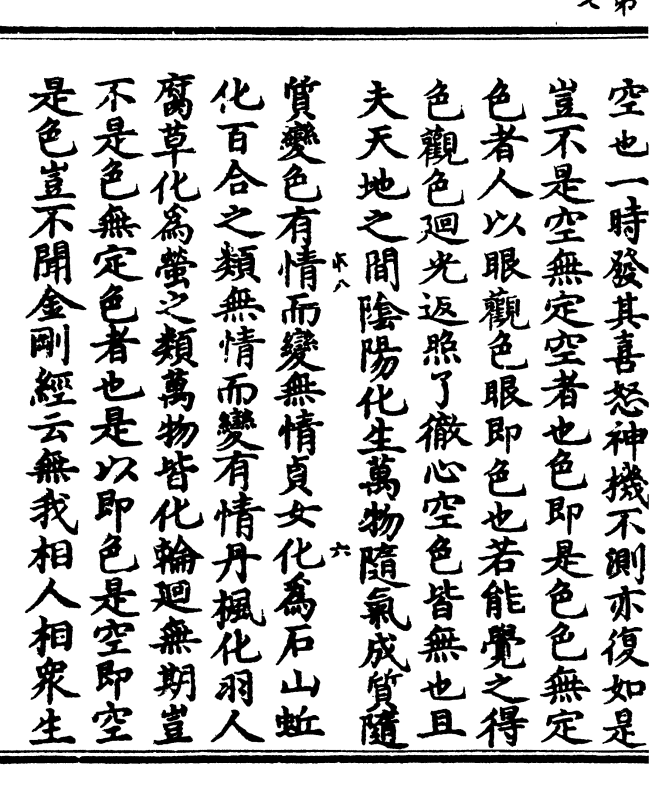 空也一時發其喜怒神機不測亦復如是
豈不是空無定空者也色即是色色無定
色者人以眼觀色眼即色也若能覺之得
色觀色廻光返照了徹心空色皆無也且
夫天地之間陰陽化生萬物隨氣成質隨
六
質變色有情而變無情貞女化為石山蚯
化百合之類無情而變有情丹楓化羽人
腐草化為螢之類萬物皆化輪廻無期豈
不是色無定色者也是以即色是空即空
是色豈不聞金剛經云無我相人相眾生